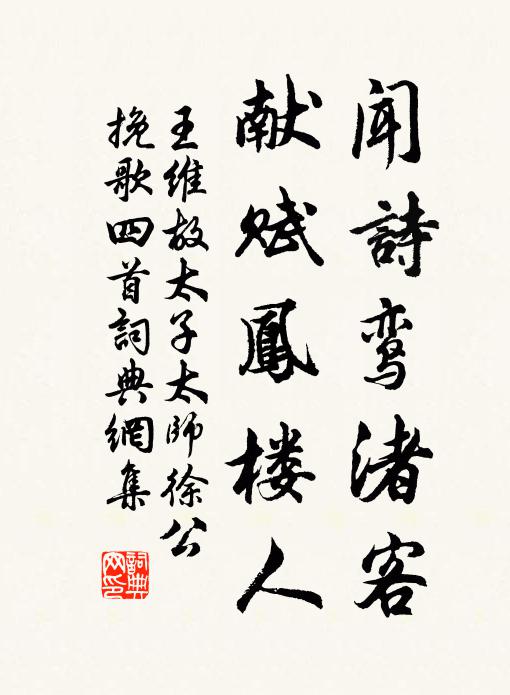 闻詩鸾渚客
献赋鳳楼人
王维故太子太師徐公
挽歌四首詞典網集
詞典
网印